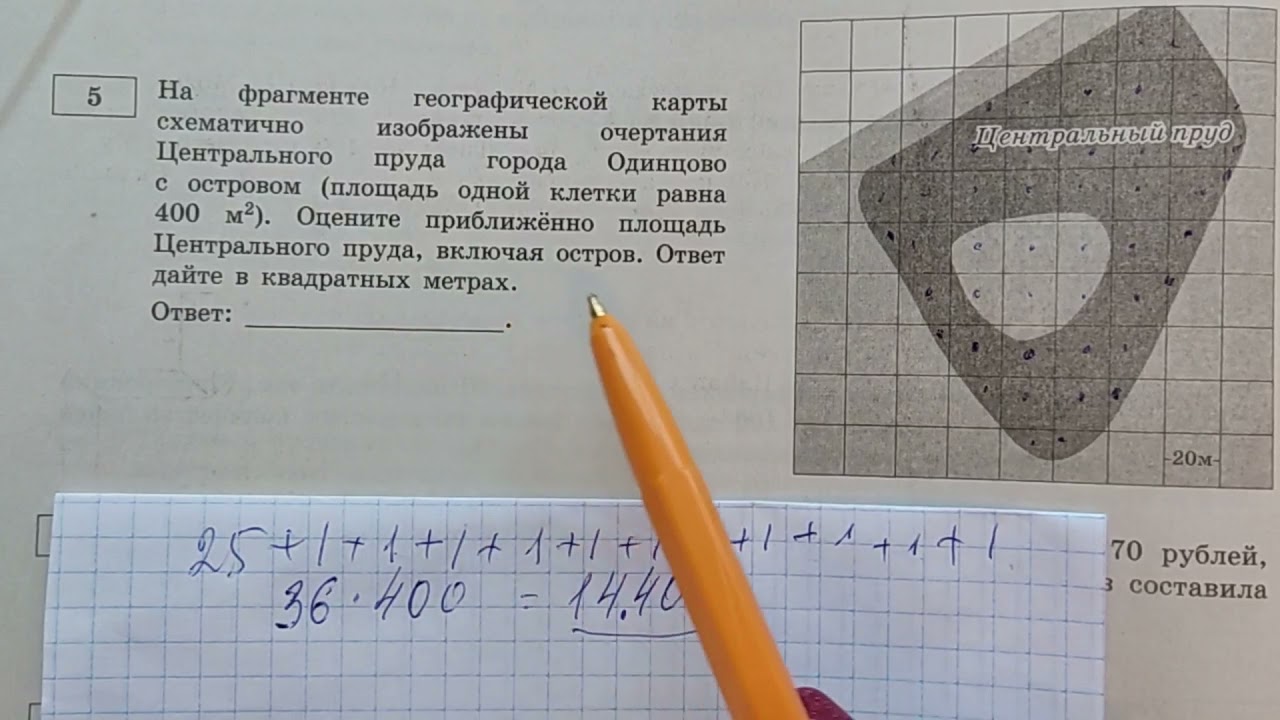 5
На фрагменте географической карты
схематично изображены очертания
Центрального пруда города Одинцово
с островом (площадь одной клетки равна
400 м²). Оцените приближённо площадь
Центрального пруда, включая остров. Ответ
дайте в квадратных метрах.
Ответ: ______________.
Центральный пруд
20м
25+1+1+1+1+1+1 +1+1+1+1
36·400 = 14.40
70 рублей,
в составила